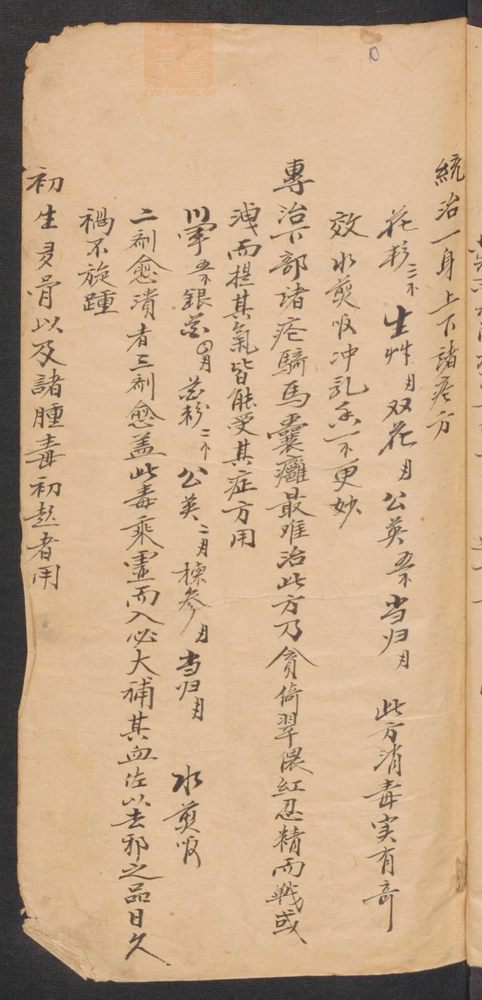 統治一身上下諸瘡方
花粉三个 生艸 双花 公英五个 当归 此方消毒实有奇
效水煎服冲乳香一个更妙
專治下部諸疮騎馬囊癰最难治此方乃貪倚翠偎紅忍精而戰或
洩而提其氣皆能受其症方用
川军五个 銀花 花粉二个 公英 楝参 当归 水煎服
二剤愈潰者三剤愈盖此毒乘虛而入必大補其血佐以去邪之品日久
禍不旋踵
初生多骨以及諸腫毒初起者用